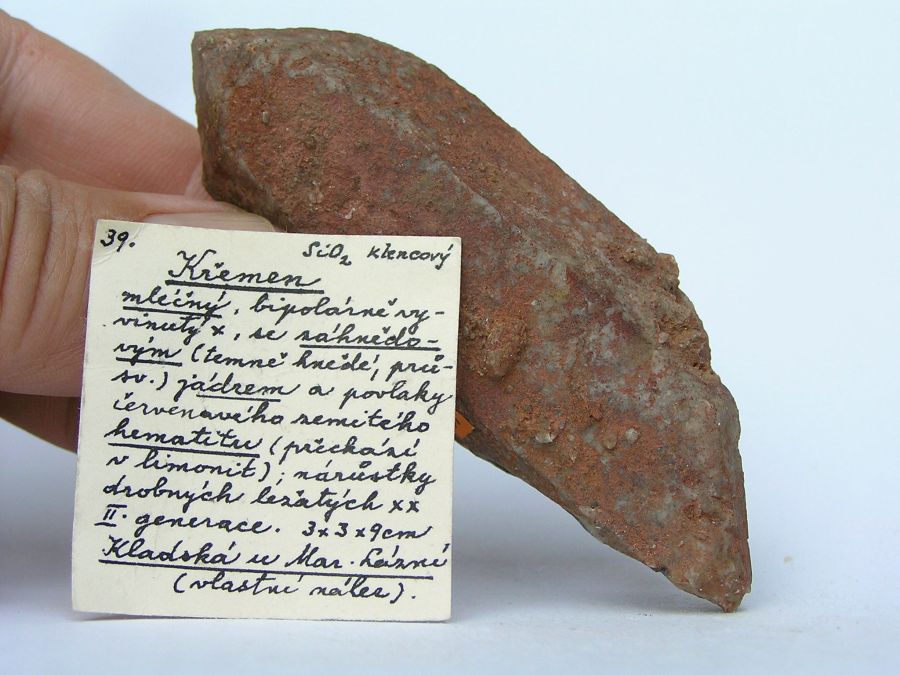 39.
SiO2 klencový
Křemen
mléčný, bipolárně vy-
vinutý x, se záhnědo-
vým (temně hnědé, prů-
sv.) jádrem a povlaky
červenavého zemitého
hematitu (přechází
v limonit); nárůstky
drobných ležatých xx
II. generace. 3x3x9cm
Kladská u Mar. Lázní
(vlastní nález).